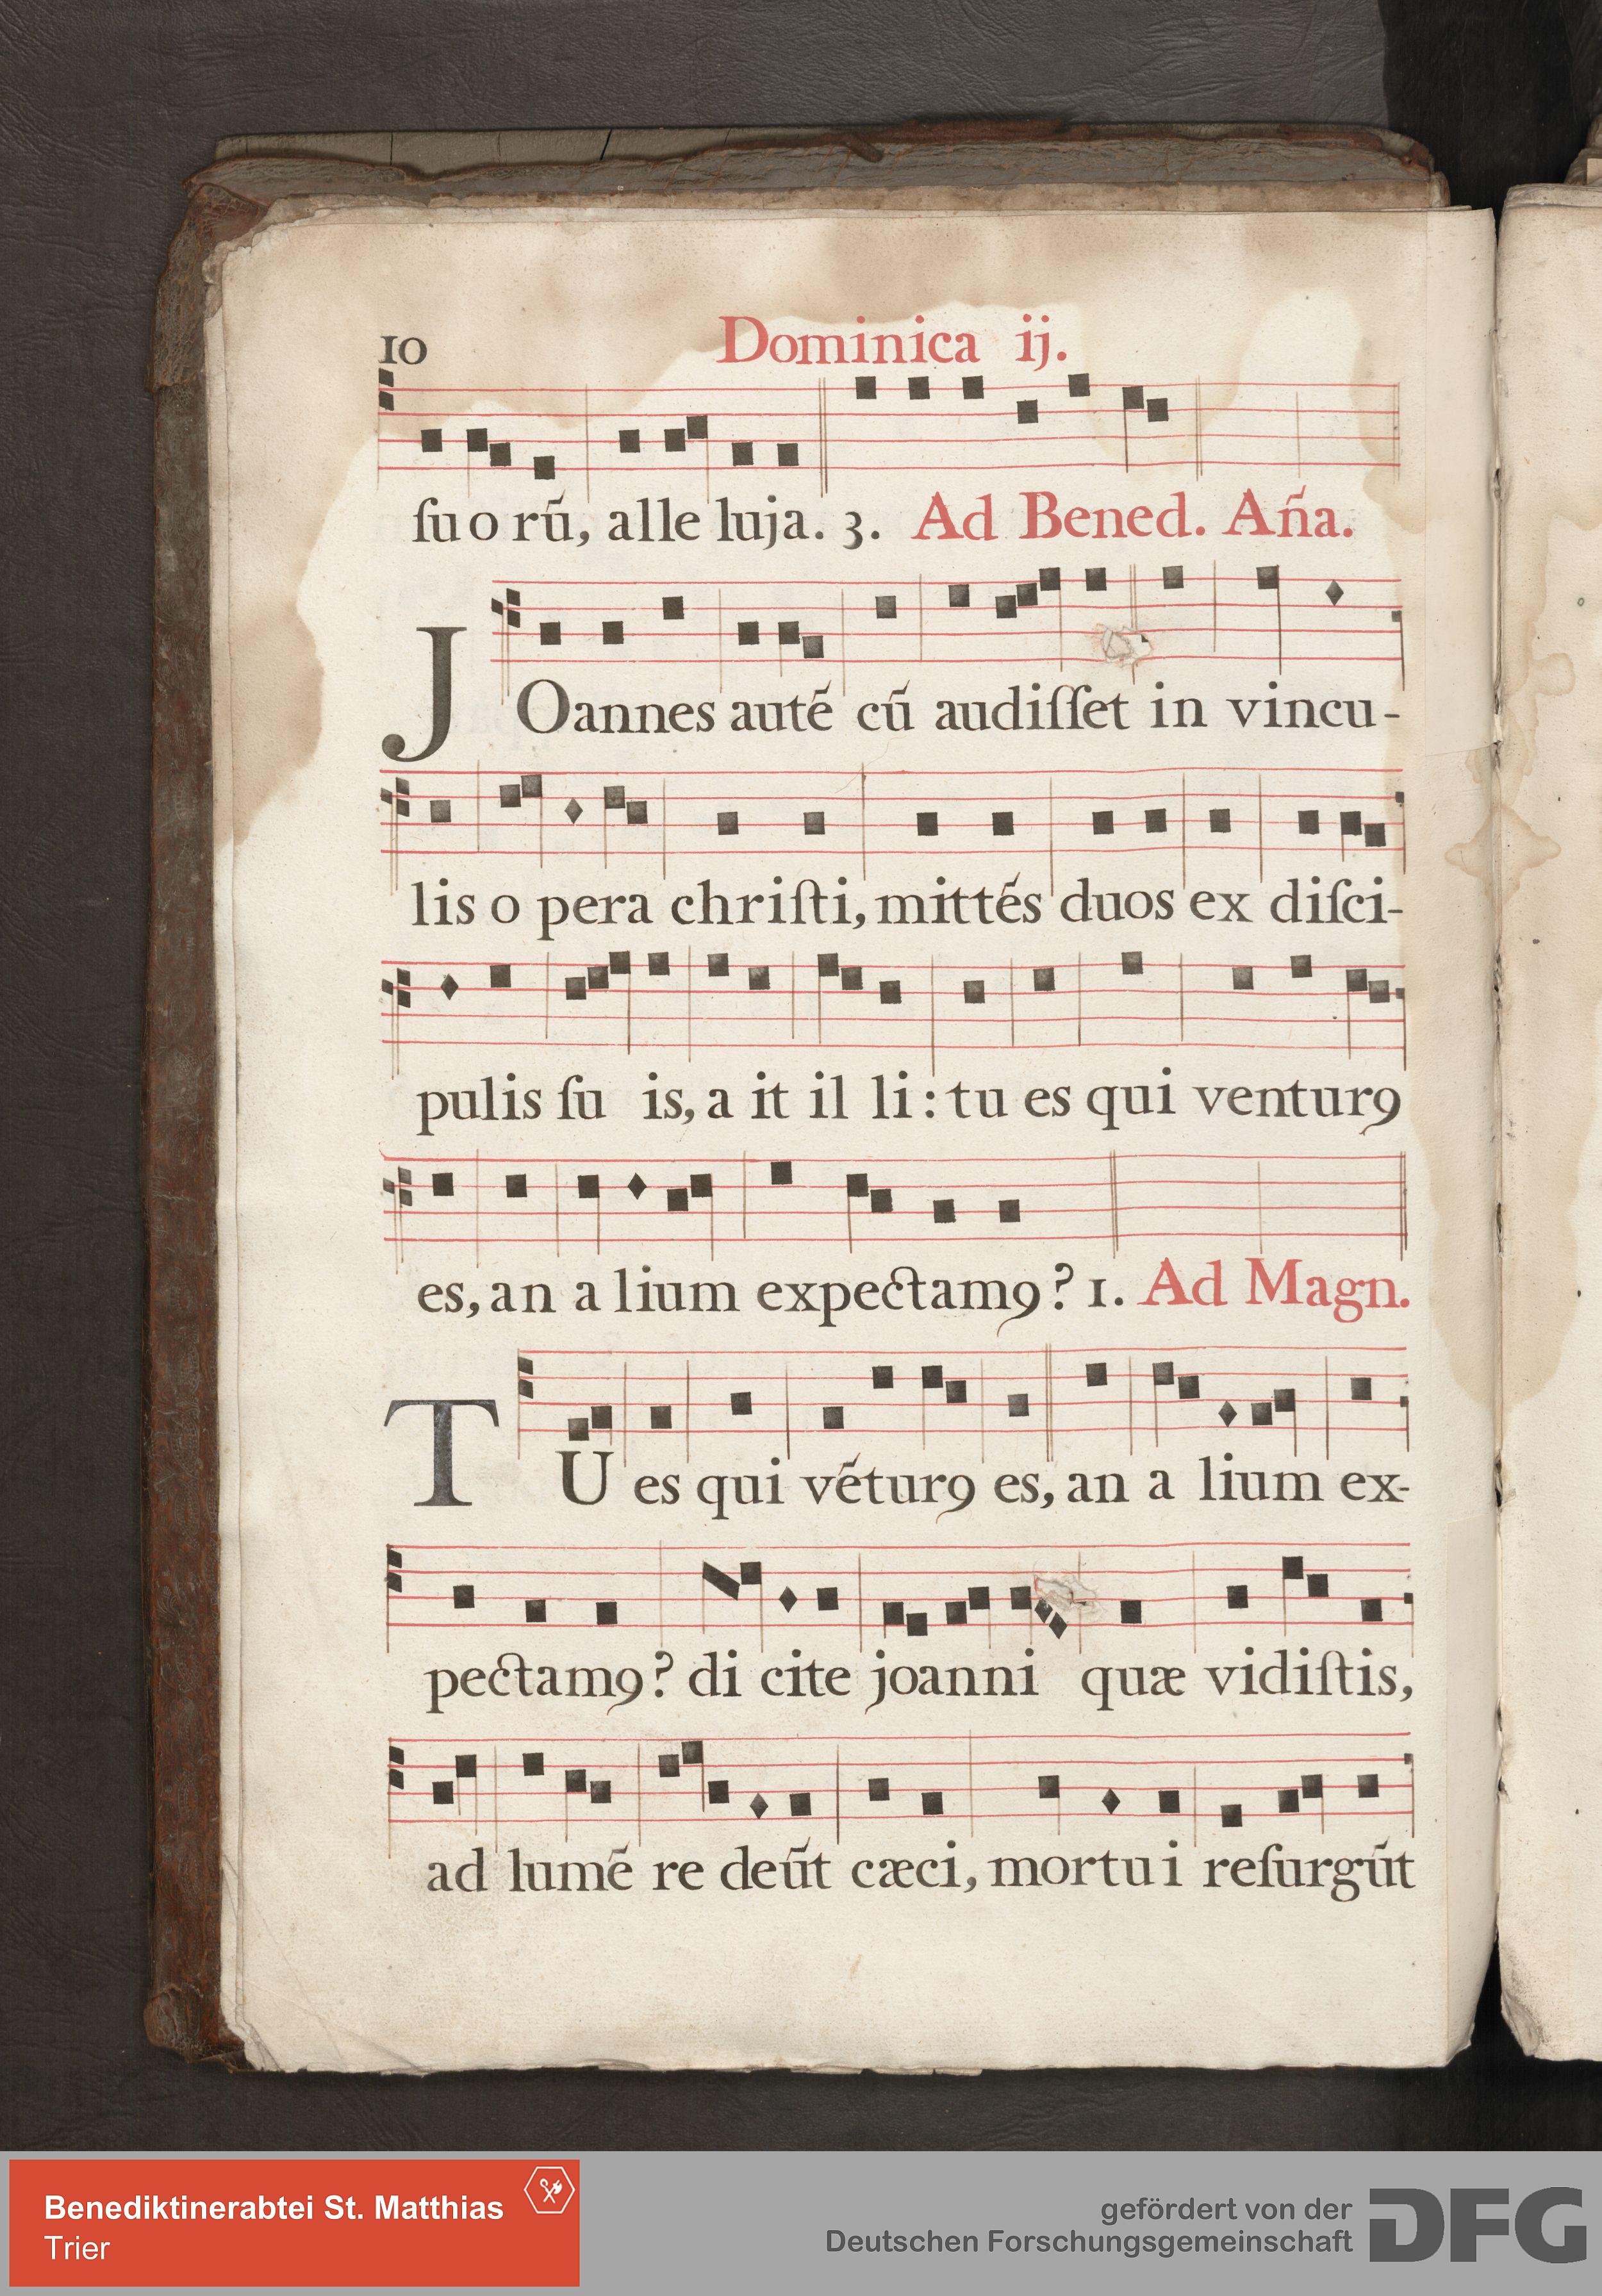 10 Dominica ij.
ſu o rũ, alle luja. 3. Ad Bened. Añа.
JOannes autẽ cũ audiſſet in vincu-
lis o pera chriſti, mittẽs duos ex diſci-
pulis ſu is, a it il li: tu es qui venturꝯ
es, an a lium expectamꝯ? 1. Ad Magn.
TU es qui vẽturꝯ es, an a lium ex-
pectamꝯ? di cite joanni quæ vidiſtis,
ad lumẽ re deũt cæci, mortu i reſurgũt
Benediktinerabtei St. Matthias
Trier
gefördert von der
Deutschen Forschungsgemeinschaft
DFG